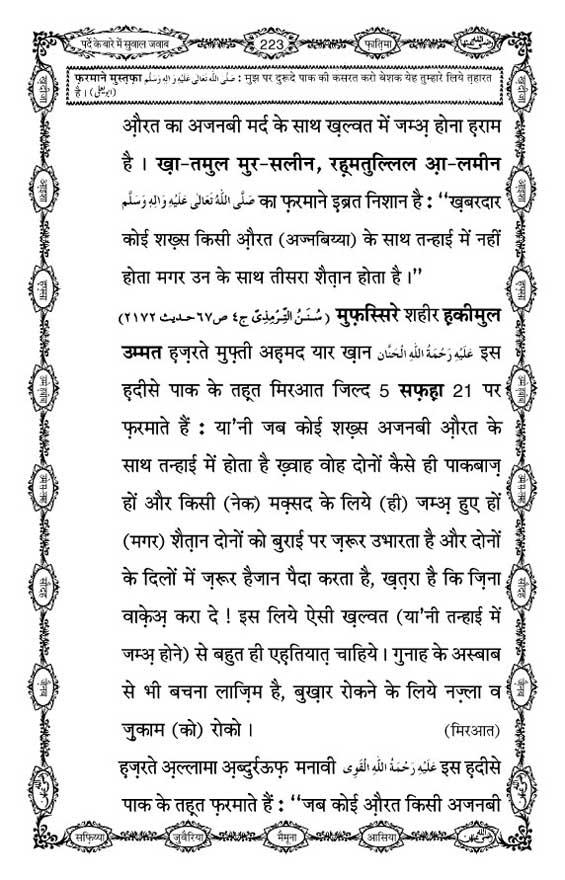 पर्दे के बारे में सुवाल जवाब
223
फ़ातिमा
फ़रमाने मुस्तफ़ा صَلَّى اللّٰهُ تَعَالٰى عَلَيْهِ وَاٰلِهٖ وَسَلَّم : मुझ पर दुरूदे पाक की कसरत करो बेशक येह तुम्हारे लिये त़हारत
है । (ابو یعلی)
औ़रत का अजनबी मर्द के साथ ख़ल्वत में जम्अ़ होना ह़राम
है । ख़ा-तमुल मुर-सलीन, रह़्मतुल्लिल आ़-लमीन
صَلَّى اللّٰهُ تَعَالٰى عَلَيْهِ وَاٰلِهٖ وَسَلَّم का फ़रमाने इ़ब्रत निशान है : ‘‘ख़बरदार
कोई शख़्स किसी औ़रत (अज्नबिय्या) के साथ तन्हाई में नहीं
होता मगर उन के साथ तीसरा शैत़ान होता है ।’’
(سُنَنُ التِّرْمِذِیّ ج٤ ص٦٧ حدیث ٢١٧٢) मुफ़स्सिरे शहीर ह़कीमुल
उम्मत ह़ज़रते मुफ़्ती अह़मद यार ख़ान عَلَيْهِ رَحْمَةُ اللّٰهِ الْحَنَّان इस
ह़दीसे पाक के तह़्त मिरआत जिल्द 5 सफ़ह़ा 21 पर
फ़रमाते हैं : या'नी जब कोई शख़्स अजनबी औ़रत के
साथ तन्हाई में होता है ख़्वाह वोह दोनों कैसे ही पाकबाज़
हों और किसी (नेक) मक़्सद के लिये (ही) जम्अ़ हुए हों
(मगर) शैत़ान दोनों को बुराई पर ज़रूर उभारता है और दोनों
के दिलों में ज़रूर हैजान पैदा करता है, ख़त़रा है कि ज़िना
वाक़ेअ़ करा दे ! इस लिये ऐसी ख़ल्वत (या'नी तन्हाई में
जम्अ़ होने) से बहुत ही एह़तियात़ चाहिये । गुनाह के अस्बाब
से भी बचना लाज़िम है, बुख़ार रोकने के लिये नज़्ला व
ज़ुकाम (को) रोको ।	(मिरआत)
ह़ज़रते अ़ल्लामा अ़ब्दुर्रऊफ़ मनावी عَلَيْهِ رَحْمَةُ اللّٰهِ الْقَوِى इस ह़दीसे
पाक के तह़्त फ़रमाते हैं : ‘‘जब कोई औ़रत किसी अजनबी
सफ़िय्या
जुवैरिया
मैमूना
आसिया